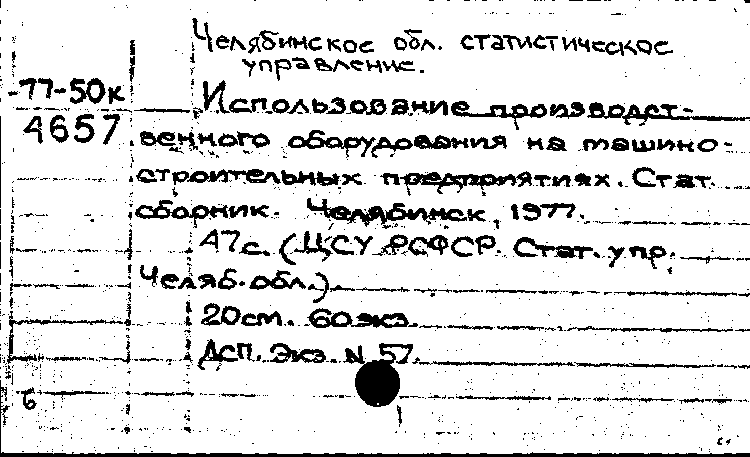 Челябинское обл. статистическое
управление.
-77-50к
4657
Использование производст-
венного оборудования на машино-
строительных предприятиях. Стат.
сборник. Челябинск, 1977.
47с. (ЦСУ РСФСР. Стат. упр.
Челяб. обл.).
20см. 60экз.
Дсп. Экз. N 57.
б